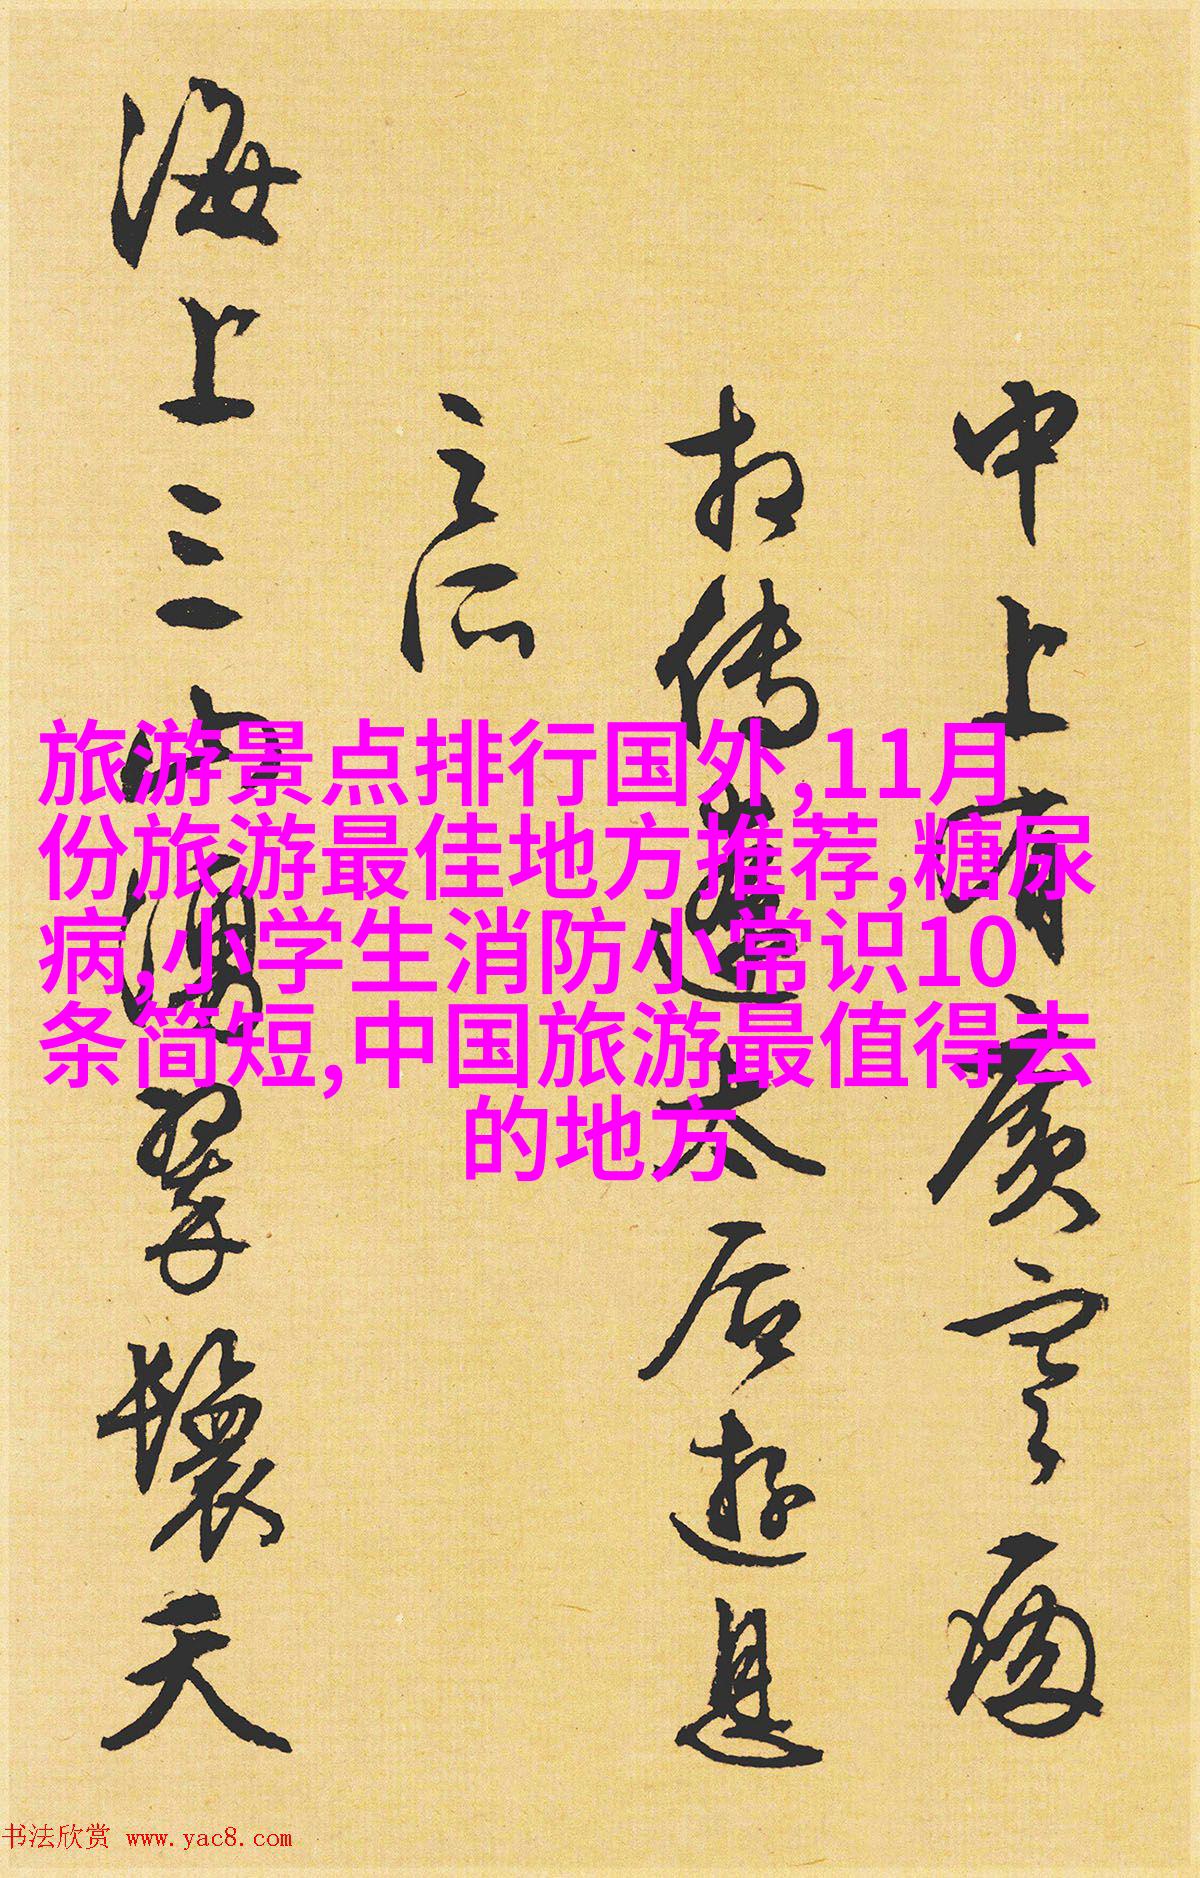 中上有廣寒殿
相傳遼太后遊息
之所
海上三山翠鬟天
旅游景点排行国外,11月
份旅游最佳地方推荐,糖尿
病,小学生消防小常识10
条简短,中国旅游最值得去
的地方
书法欣赏 www.yac8.com